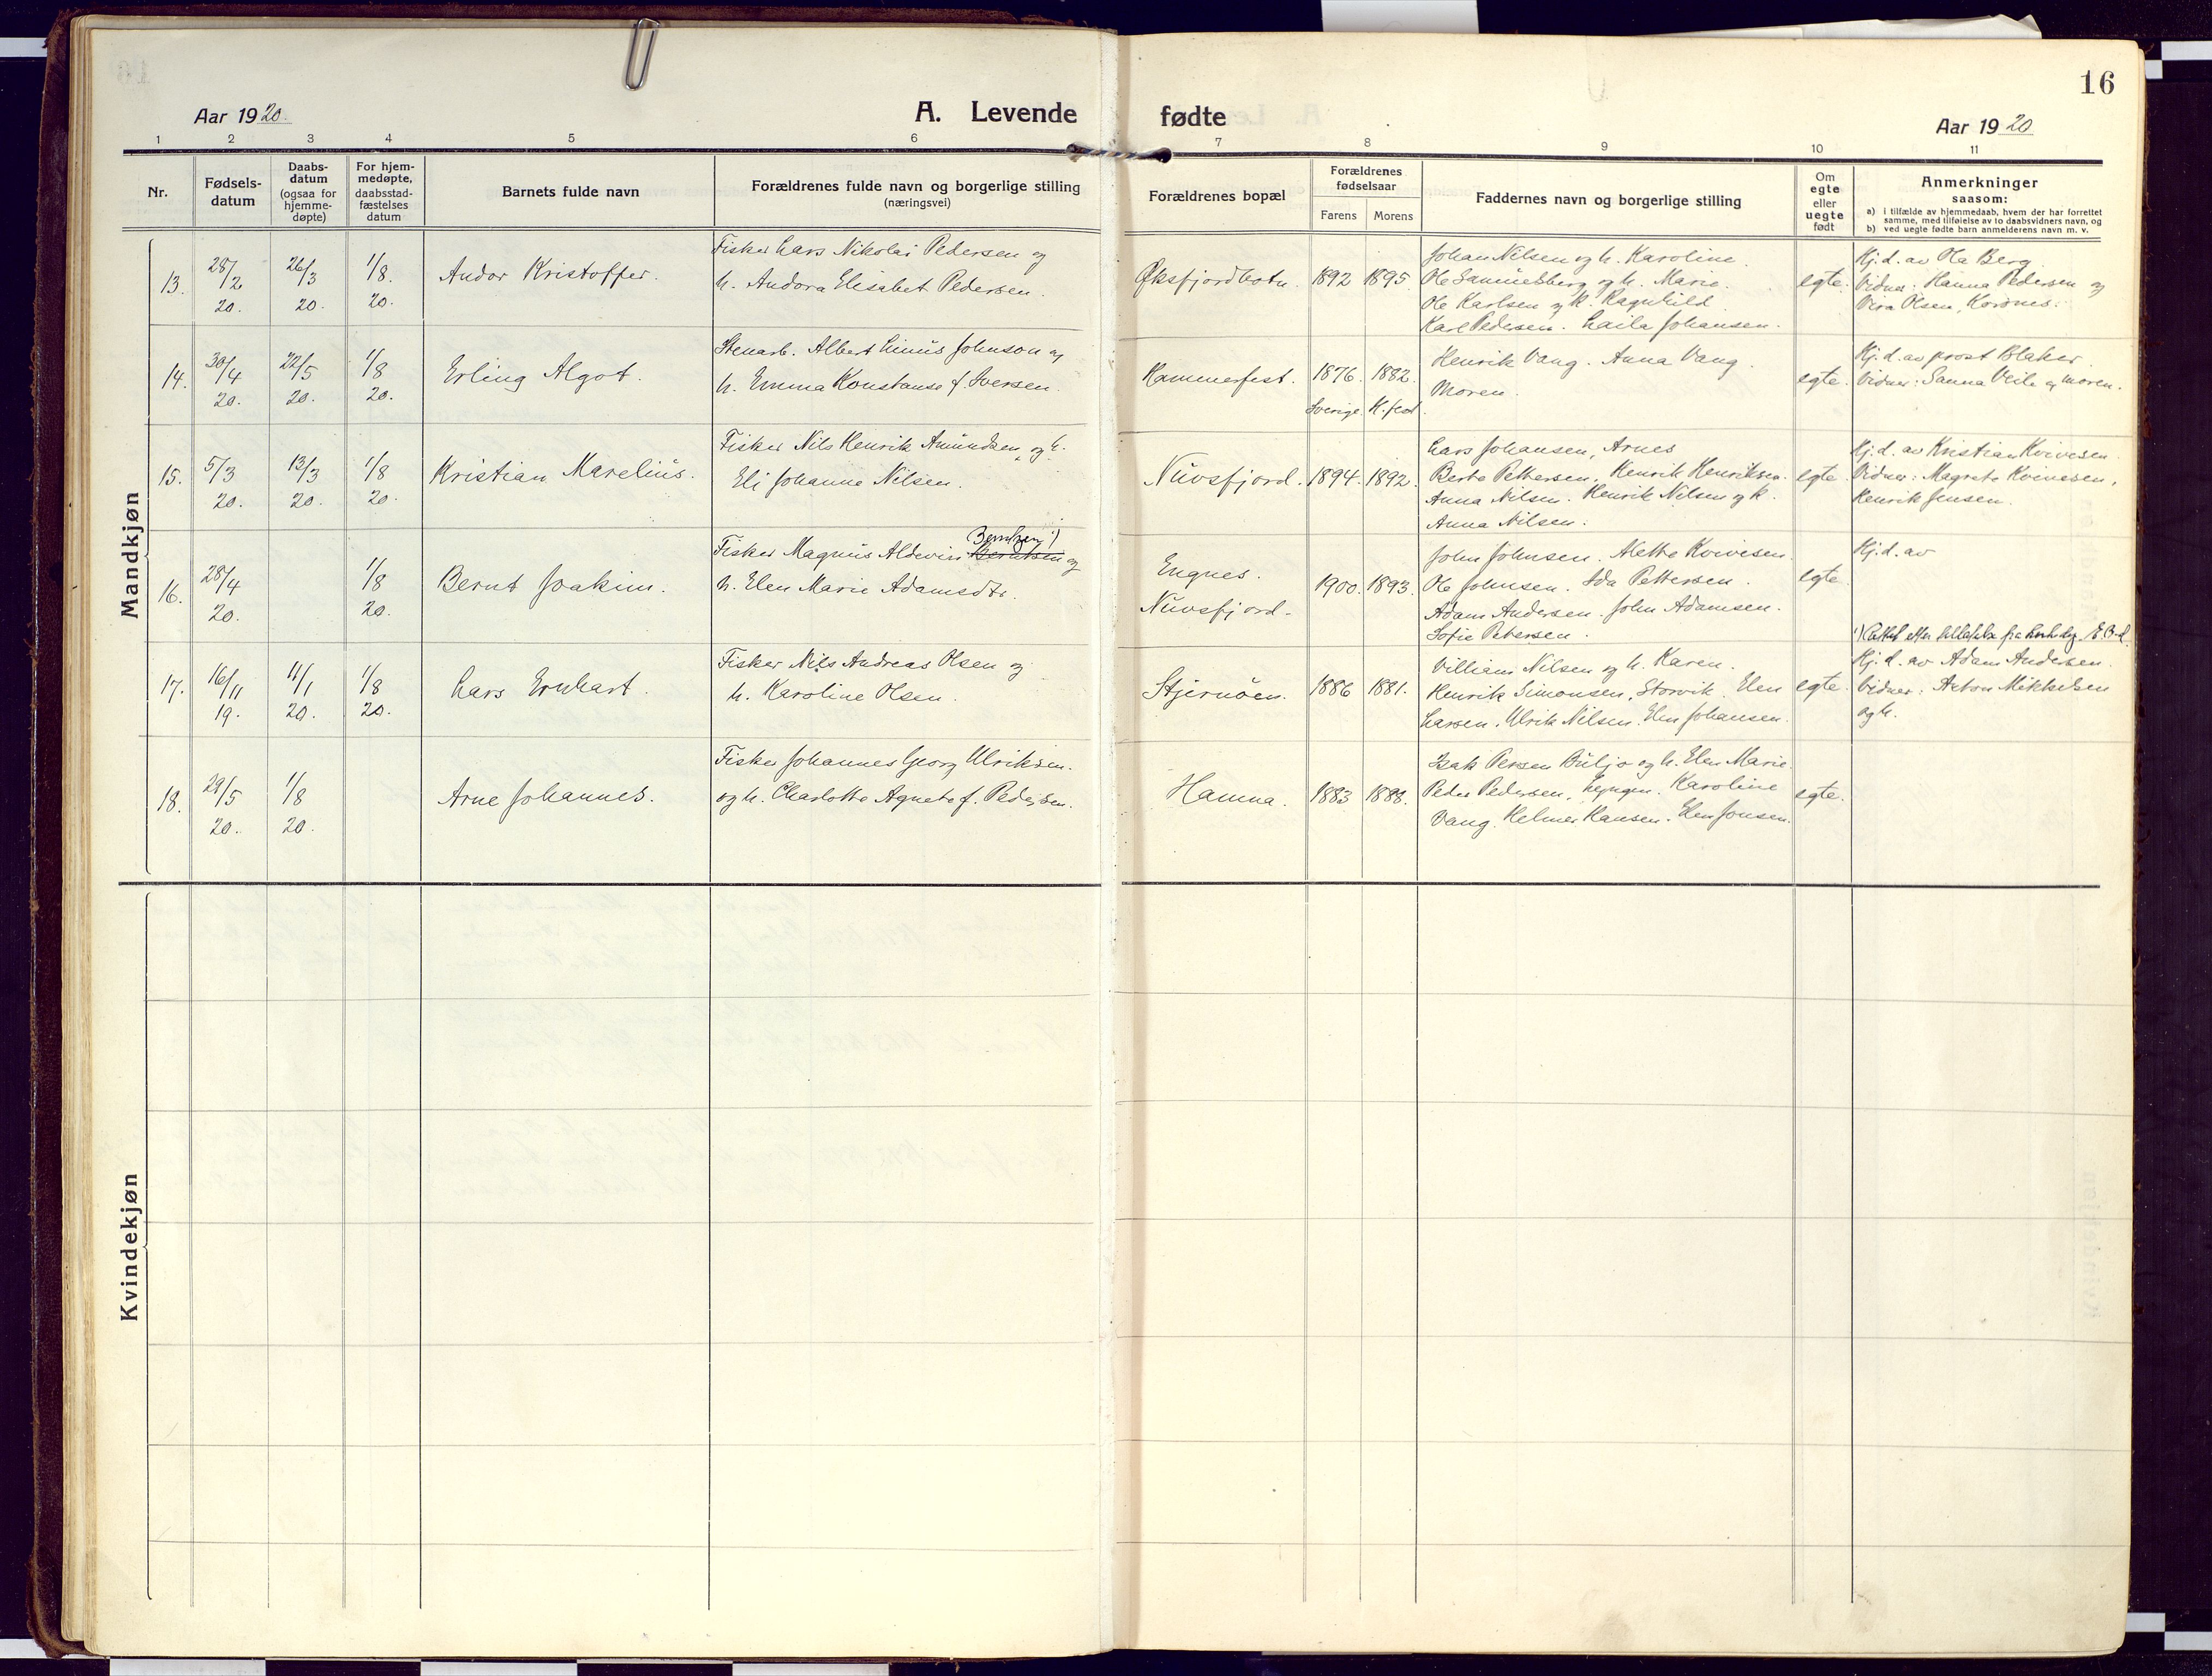 16
Aar 1920.
A. Levende fødte
Aar 1920
1 2 3 4 5 6 7 8 9 10 11
Nr.
Fødsels-
datum
Daabs-
datum
(ogsaa for
hjemme-
døpte)
For hjem-
medøpte,
daabsstad-
fæstelses
datum
Barnets fulde navn
Forældrenes fulde navn og borgerlige stilling
(næringsvei)
Forældrenes bopæl
Forældrenes
fødselsaar
Farens Morens
Faddernes navn og borgerlige stilling
Om
egte
eller
uegte
født
Anmerkninger
saasom:
a) i tilfælde av hjemmedaab, hvem der har forrettet
samme, med tilføielse av to daabsvidners navn, og
b) ved uegte fødte barn anmelderens navn m. v.
Mandkjøn
13.
28/2
20.
26/3
20.
1/8.
20.
Andor Kristoffer.
Fisker Lars Nikolai Pedersen og
h. Andora Elisabet Pedersen.
Øksfjordbotn.
1892 1895.
Johan Nilsen og h. Karoline.
Ole Samuelsberg og h. Marie.
Ole Karlsen og k. Ragnhild
Karl Pedersen. Laila Johansen.
egte.
Hj. d. av Ola Berg.
Vidner: Hanna Pedersen og
Olsen, Korsnes.
14.
30/4
20.
22/5
20.
1/8
20.
Erling Algot.
Stenarb. Albert Linus Johnson og
h. Emma Konstanse f. Iversen.
Hammerfest.
1876. 1882.
Sverige. H.fest.
Henrik Vang. Anna Vang.
Moren.
egte.
Hj. d. av prost Blaker
Vidner: Sanna Veile og moren.
15.
5/3
20.
13/3
20.
1/8
20.
Kristian Marelius.
Fisker Nils Henrik Amundsen, og h.
Eli Johanne Nilsen.
Nuvsfjord.
1894. 1892.
Lars Johansen, Arnes
Berte Pettersen, Henrik Henriksen.
Anna Nilsen. Henrik Nilsen og k.
Anna Nilsen.
egte.
Hj. d. av Kristian Kvivesen.
Vidner: Magrete Kvivesen,
Henrik Jensen.
16.
28/4
20.
1/8
20.
Bernt Joakim.
Berntsen 1)
Fisker Magnus Aldevin Berntsen og
h. Elen Marie Adamsdtr.
Engnes.
Nuvsfjord.
1900. 1893.
John Johnsen. Mette Kvivesen.
Ole Johnsen. Ida Pettersen.
Adam Andersen. John Adamsen.
Sofie Petersen.
egte.
Hj. d. av
1) Rettet efter
17.
16/11
19.
11/1
20.
1/8
20.
Lars Ernhart.
Fisker Nils Andreas Olsen og
h. Karoline Olsen.
Stjernøen.
1886 1881.
Villiam Nilsen og h. Karen.
Henrik Simonsen, Storvik. Elen
Larsen. Ulrik Nilsen. Elen Johansen.
egte.
Hj. d. av Adam Andersen.
Vidner: Anton Mikkelsen
og h.
18.
29/5
20.
1/8
20.
Arne Johannes.
Fisker Johannes Georg Ulriksen.
og h. Charlotte Agnete f. Pedersen.
Hamna.
1883 1888.
Isak Persen Buljo og h. Elen Marie.
Peder Pedersen, Lyngen. Karoline
Vang. Helmer Hansen. Elen Jonsen.
egte.
Kvindekjøn